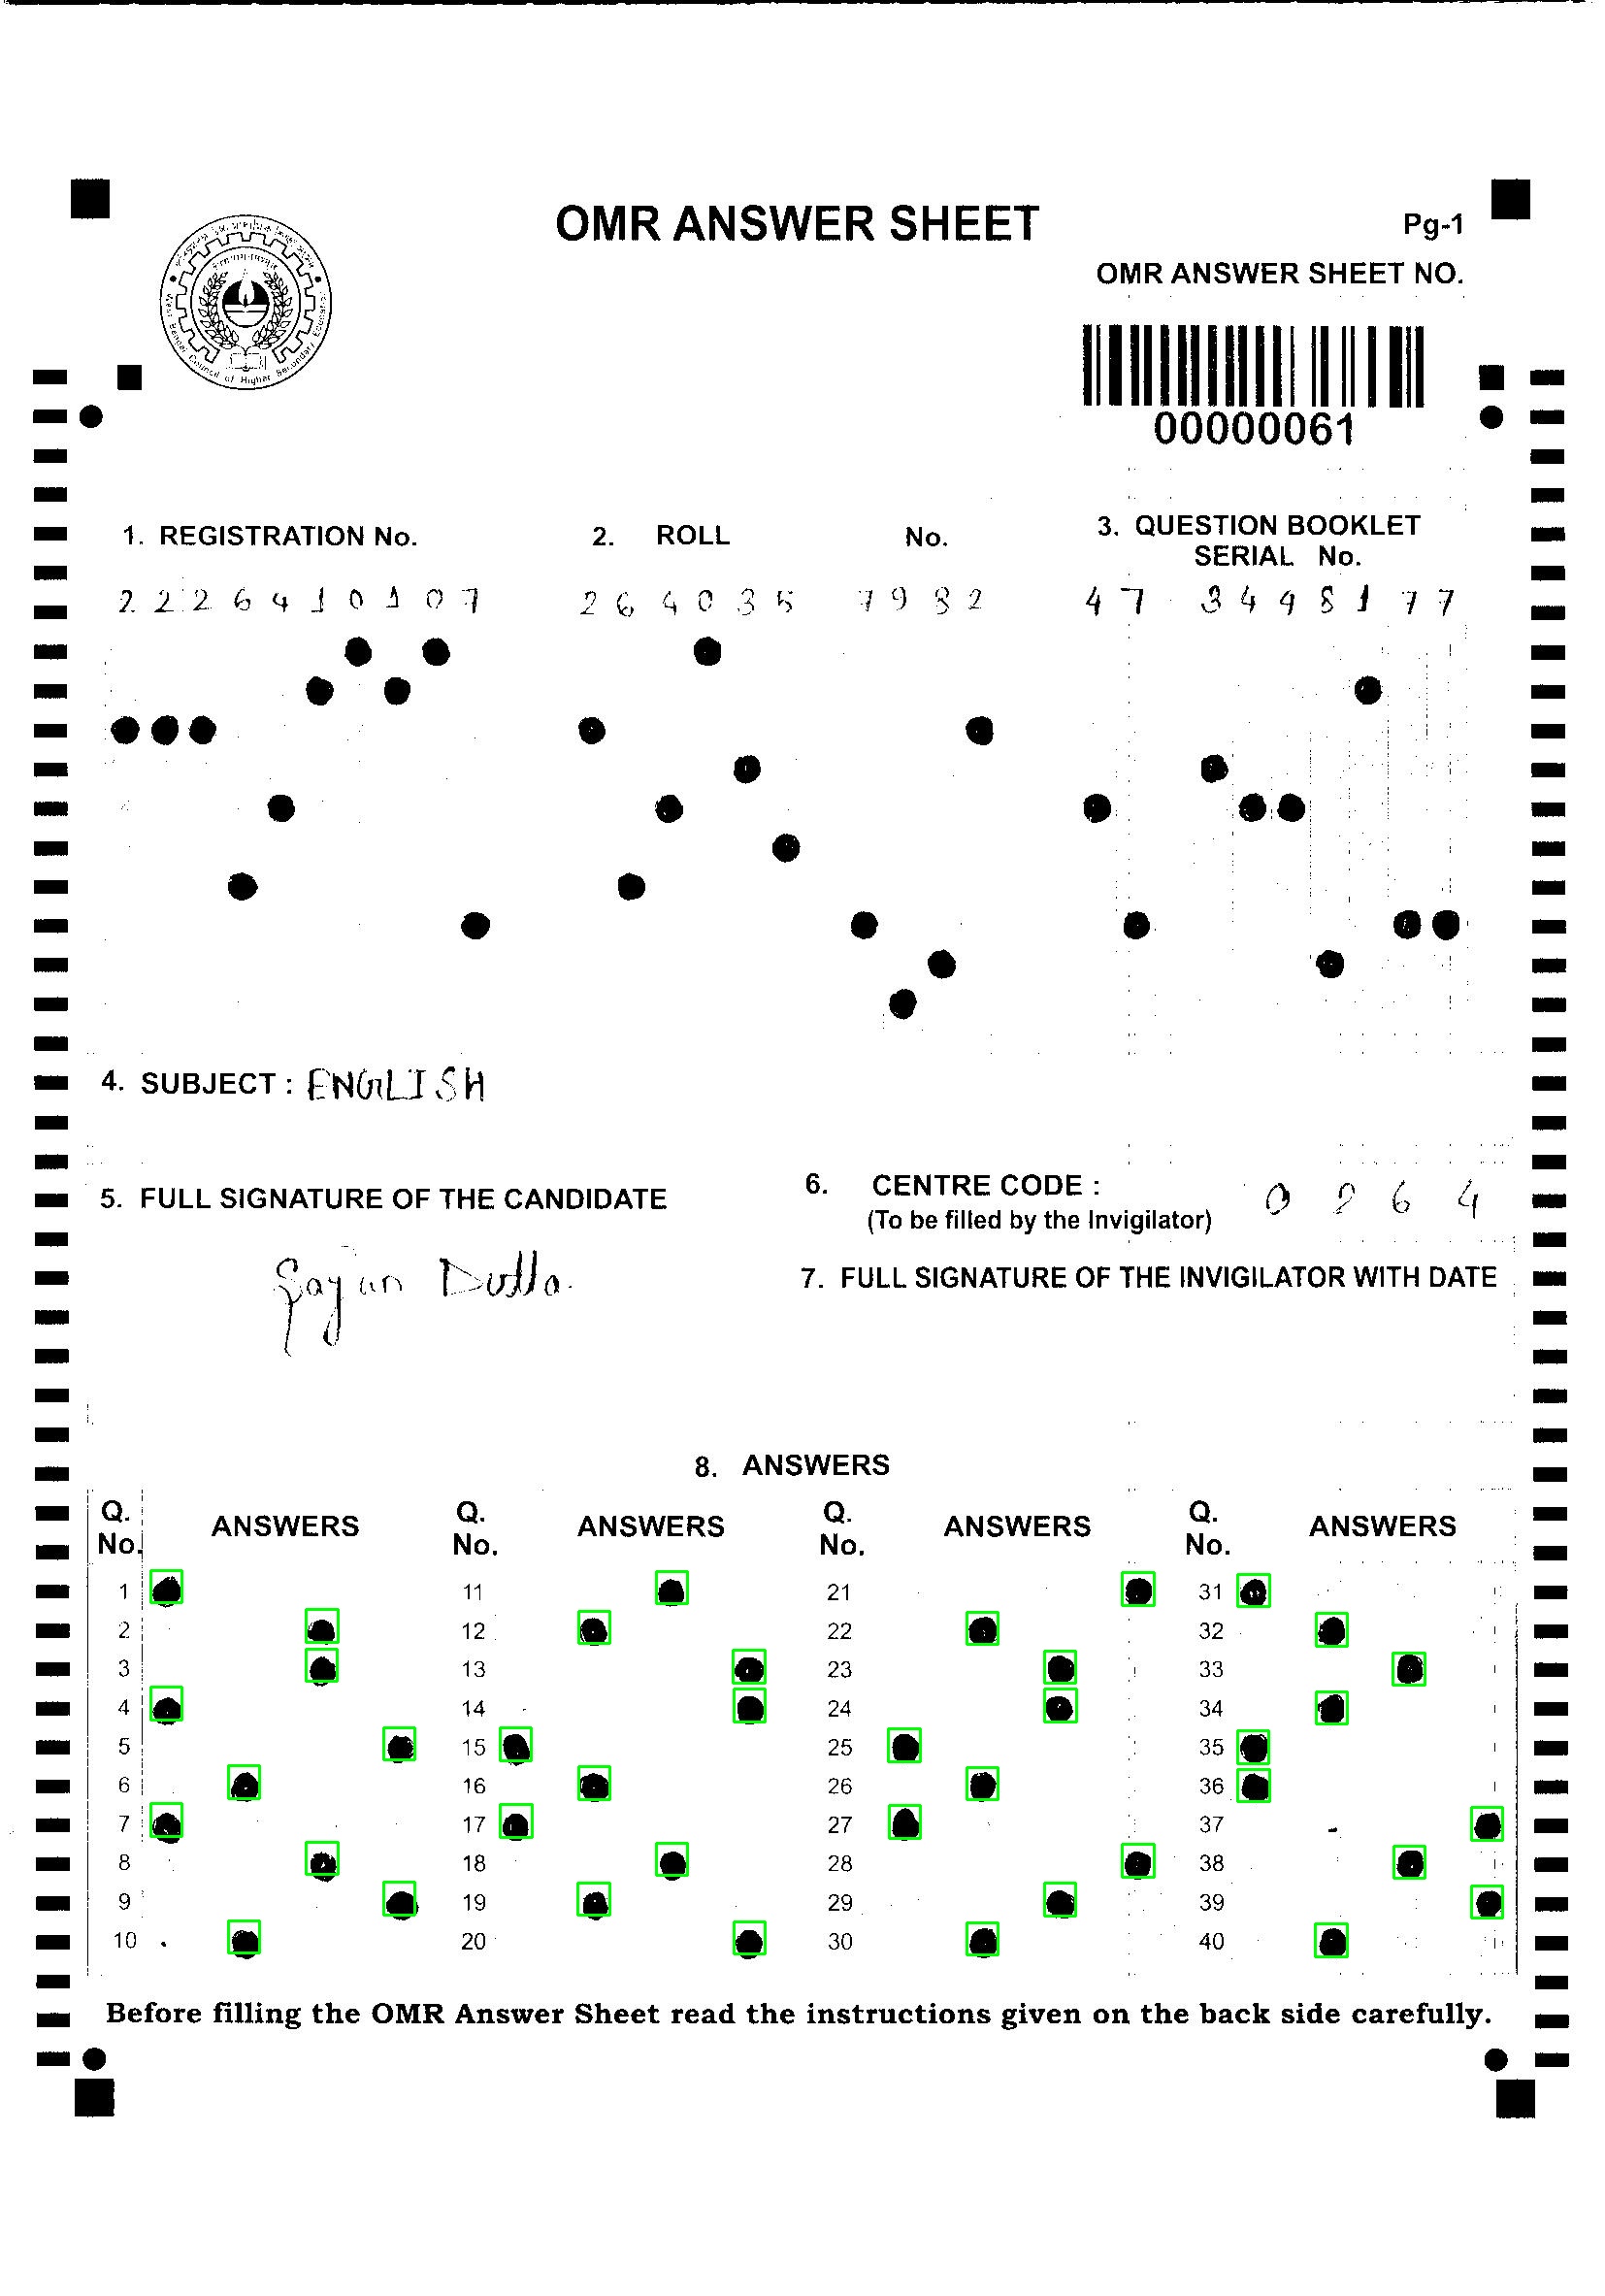 OMR ANSWER SHEET
Pg-1
OMR ANSWER SHEET NO.
00000061
West Bengal Council of Higher Secondary Education
1. REGISTRATION No.
2. ROLL No.
3. QUESTION BOOKLET
SERIAL No.
2 2 2 6 4 1 0 1 0 7
2 6 4 0 3 5 7 9 8 2
4 7 3 4 4 8 1 7 7
4. SUBJECT : ENGLISH
5. FULL SIGNATURE OF THE CANDIDATE
6. CENTRE CODE : 0 2 6 4
(To be filled by the Invigilator)
Sayan Dutta.
7. FULL SIGNATURE OF THE INVIGILATOR WITH DATE
8. ANSWERS
Q. No. ANSWERS Q. No. ANSWERS Q. No. ANSWERS Q. No. ANSWERS
1 11 21 31
2 12 22 32
3 13 23 33
4 14 24 34
5 15 25 35
6 16 26 36
7 17 27 37
8 18 28 38
9 19 29 39
10 20 30 40
Before filling the OMR Answer Sheet read the instructions given on the back side carefully.